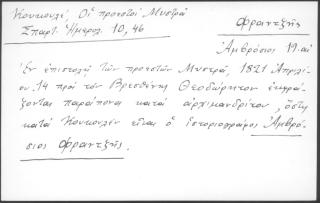 Κουκουλέ, Οἱ προτοτοί Μυστρᾶ
Σπαρτ. Ἡμερολ. 10, 46
Φραντζῆς
Ἀμβρόσιος 19 αἰ
Ἐν ἐπιστολῇ τῶν προτοτῶν Μυστρᾶ, 1821 Ἀπριλί-
ου 14 πρὸς τὸν Βρεσθένης Θεοδώρητον ἐκφρά-
ζονται παράπονα κατὰ ἀρχιμανδρίτου, ὅστις
κατὰ Κουκουλὲν εἶναι ὁ ἱστοριογράφος Ἀμβρό-
σιος Φραντζῆς.